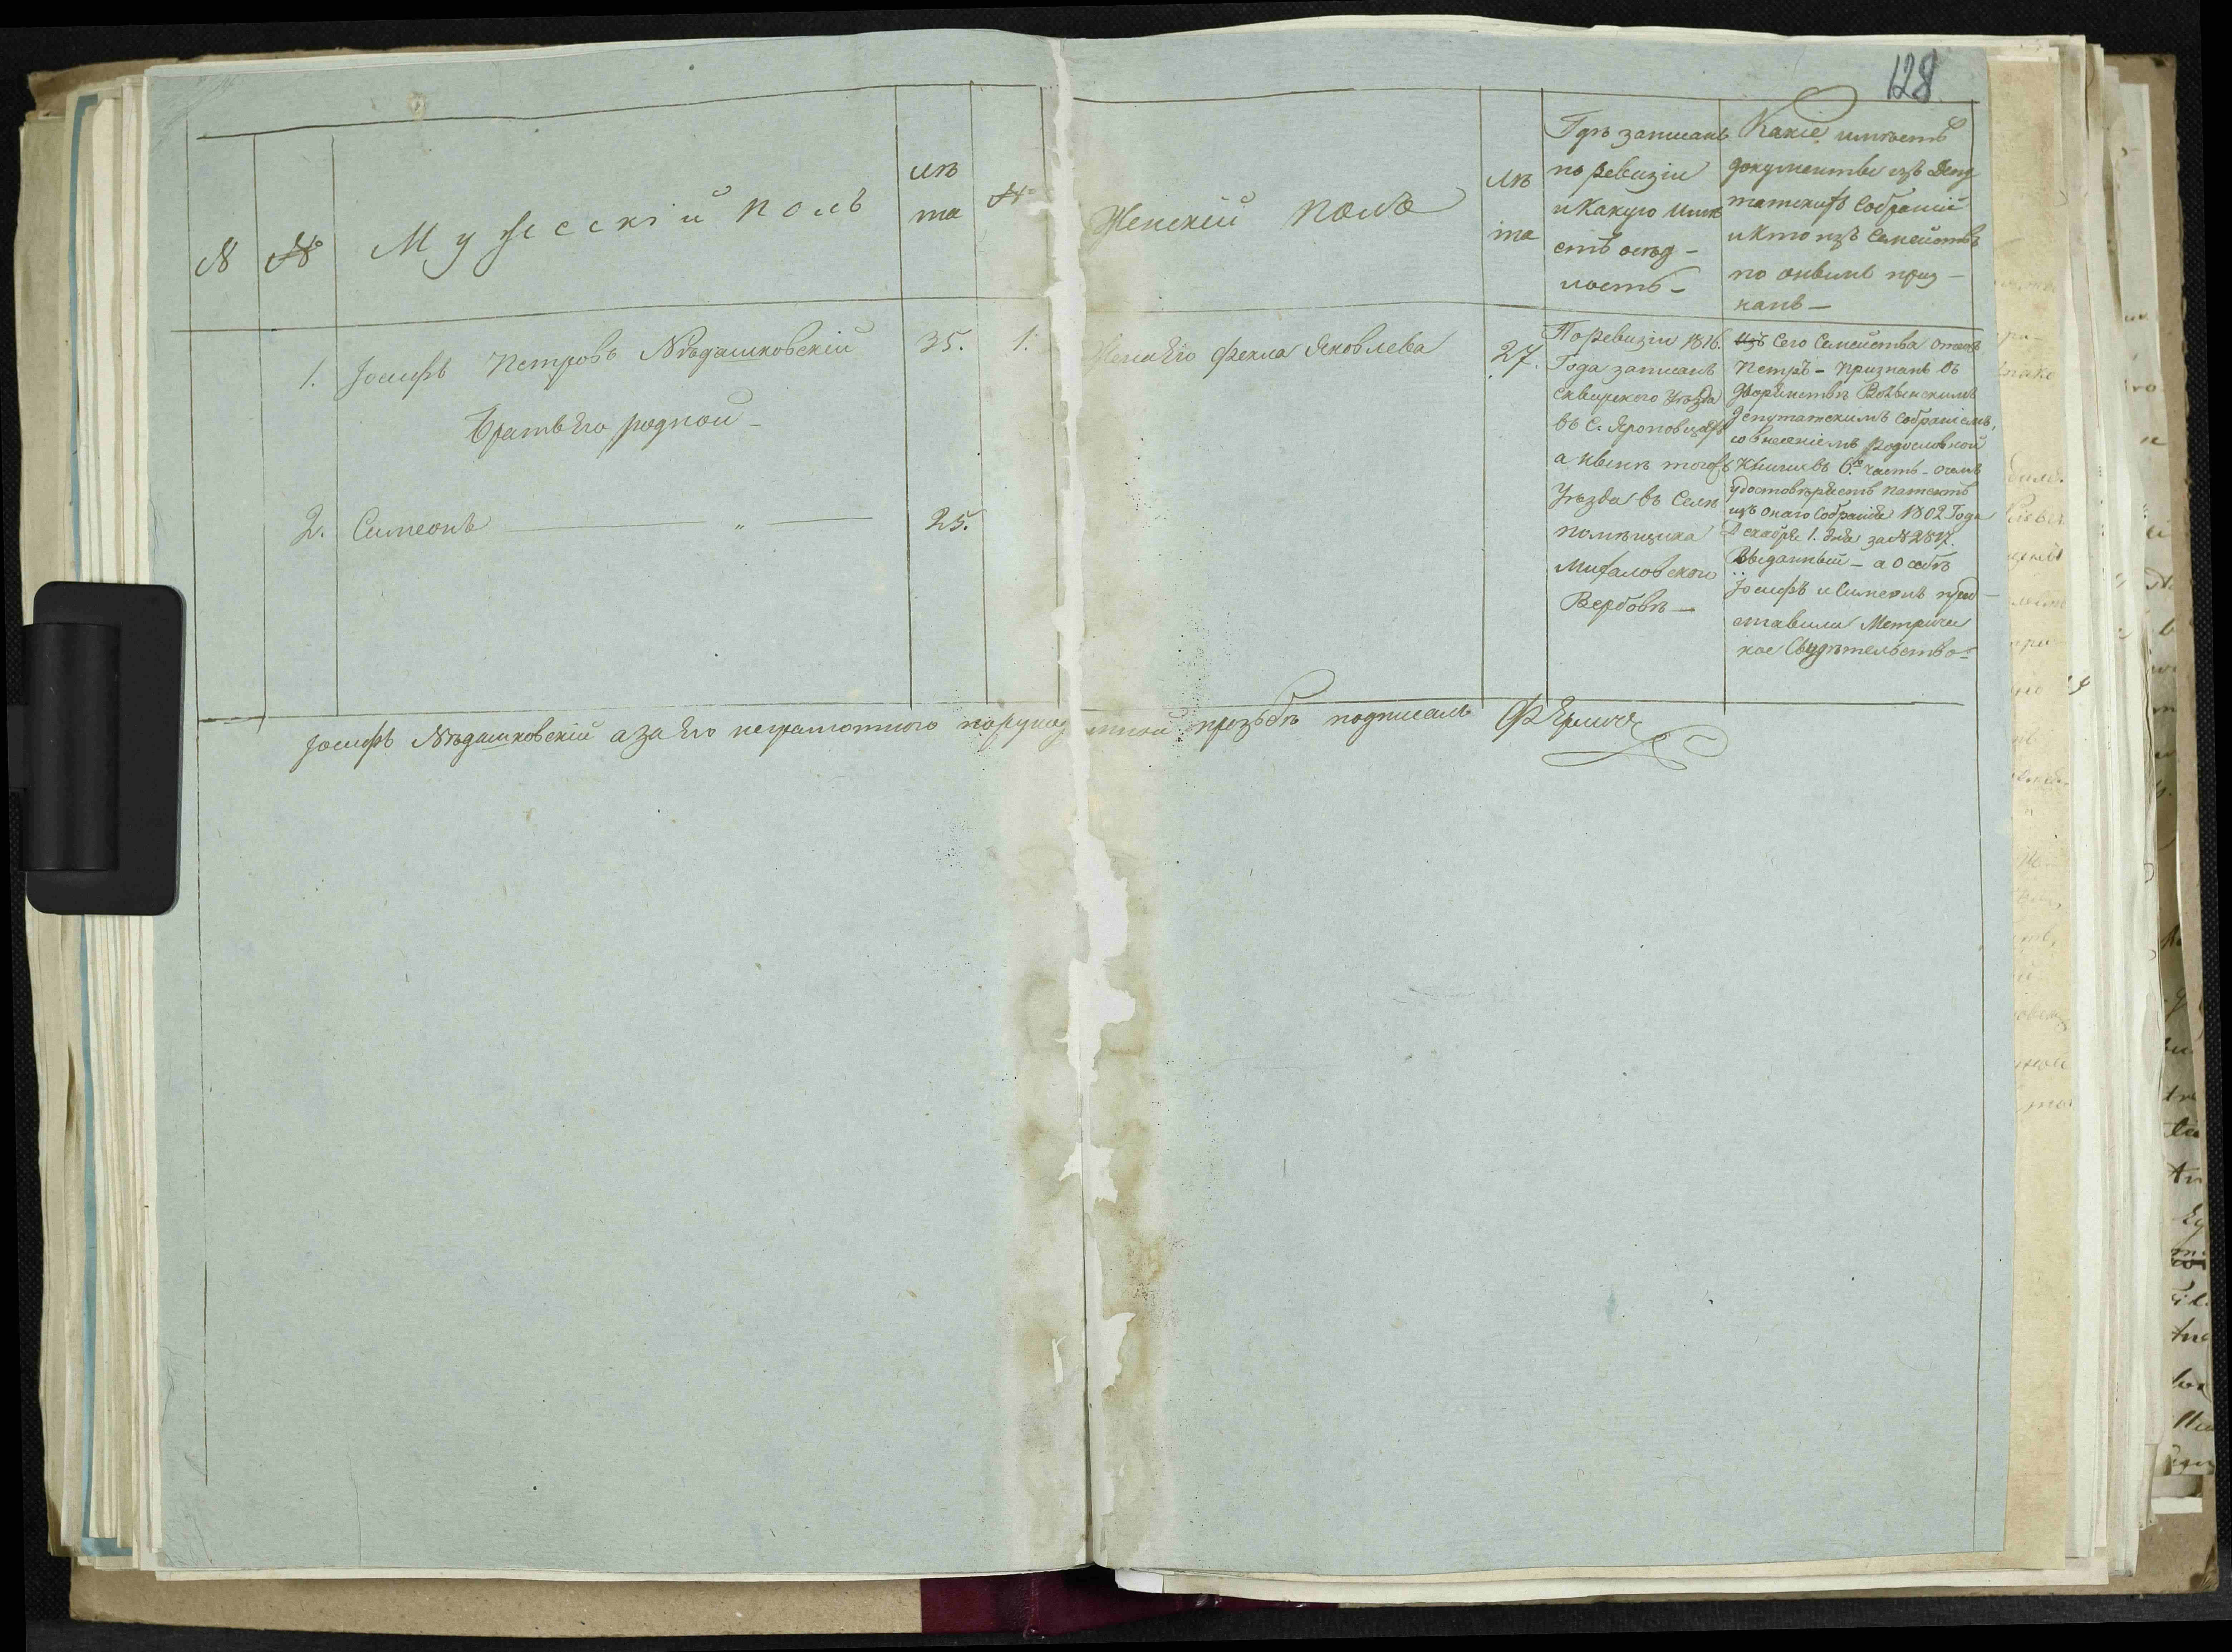 128.
№
№
Мужескій полъ
лѣ
та
№
Женскій полъ
лѣ
та
Гдѣ записанъ
по ревизіи
и Какую имѣ
етъ осѣд-
лость-
Какіе имѣетъ
документы изъ Депу
татскихъ Собраній
и Кто изъ Семейства
по онымъ приз-
нанъ-
1. Іосифъ Петровъ Нѣдашковскій 35.
Братъ Его родной-
2. Симеонъ — " — 25.
1. Жена Его Фекла Яковлева 27.
По Ревизіи 1816.
Года записанъ
Сквирского Уѣзда
въ С. Яроповцахъ
а нынѣ тогожъ
Уѣзда въ Селѣ
помѣщика
Михаловскои
Вербовѣ-
Изъ Сего Семейства отецъ
Петръ - признанъ въ
Дворянствѣ Волынскимъ
Депутатскимъ Собраніемъ,
со внесеніемъ Родословной
Книги въ 6ю часть - о чемъ
удостовѣряетъ патентъ
изъ онаго Собранія 1802 Года
Декабря 1. дня за № 2817.
Выданный - а о себѣ
Іосифъ и Симеонъ пред-
ставили Метричес
кое Свидѣтельство-
Іосифъ Нѣдашковскій а за Его неграмотного порукод прозьбѣ подписалъ